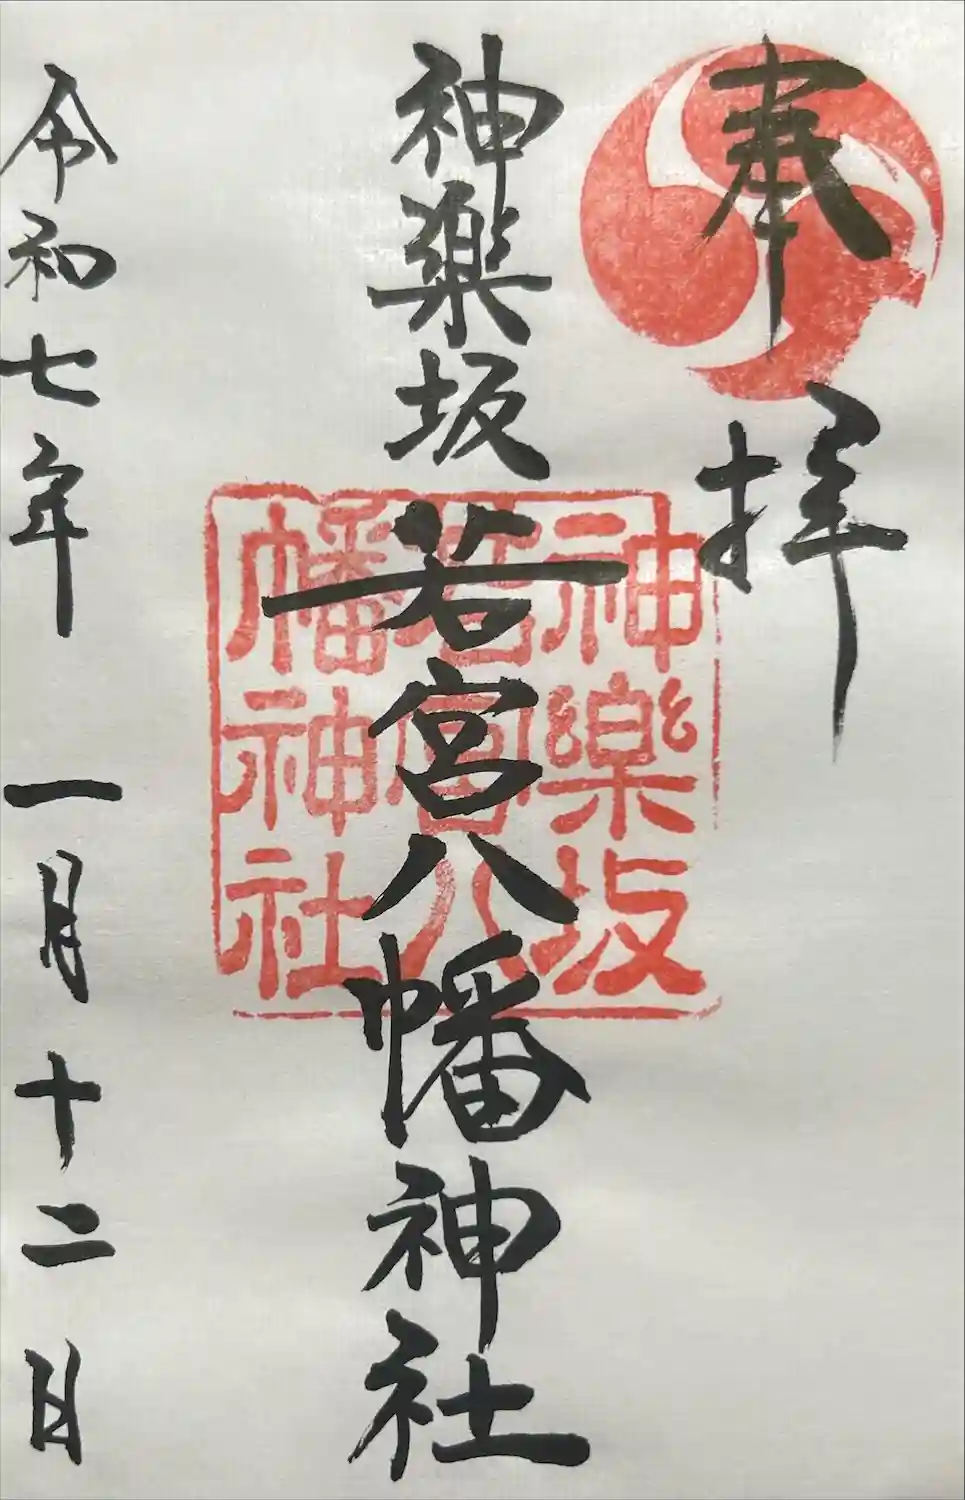 奉拝
神楽坂若宮八幡神社
神樂坂
若宮八
幡神社
令和七年 一月十二日